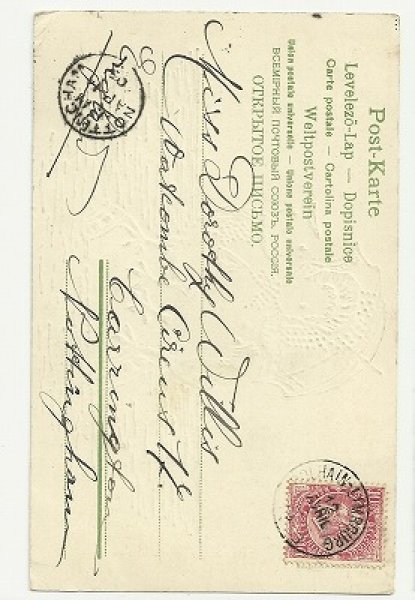 Post-Karte
Levelező-Lap — Dopisnice
Carte postale — Cartolina postale
Weltpostverein
Union postale universelle — Unione postale universale
ВСЕМІРНЫЙ ПОЧТОВЫЙ СОЮЗЪ. РОССІЯ.
ОТКРЫТОЕ ПИСЬМО.
Miss Dorothy Willis
Circus St
Carrington
Nottingham
NOTTINGHAM